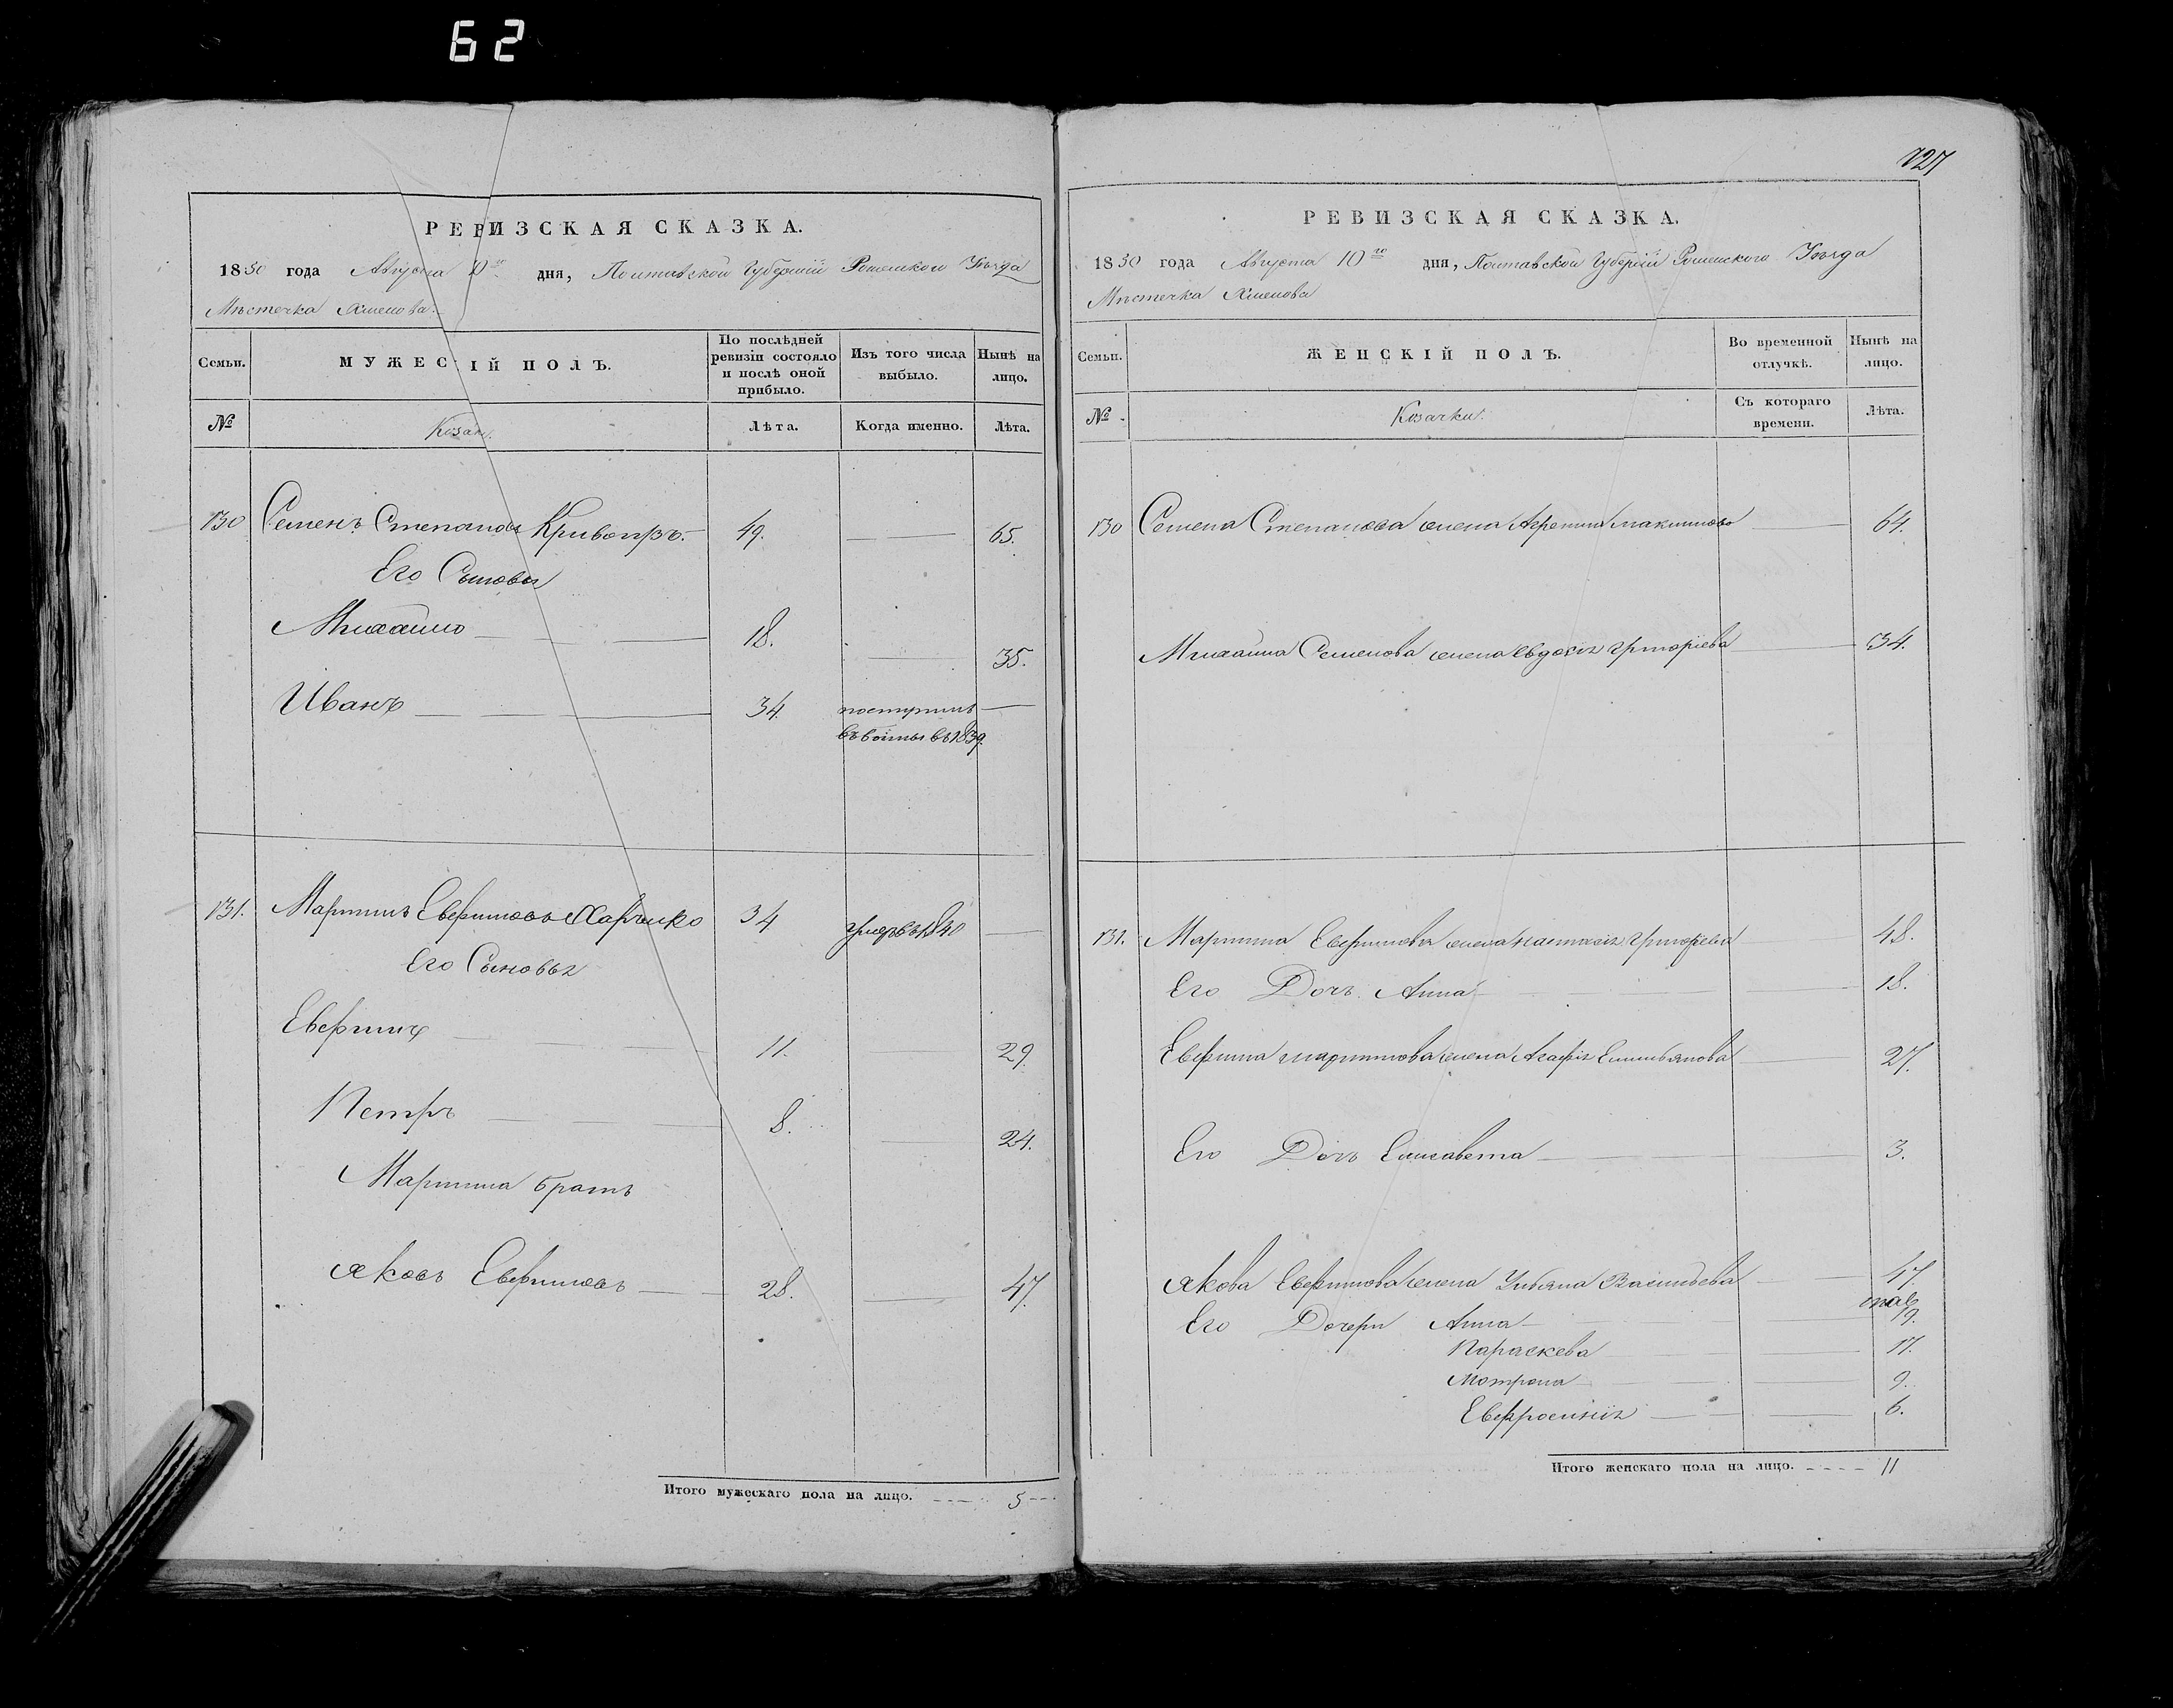 62
127
РЕВИЗСКАЯ СКАЗКА.
1850 года Августа 10го дня, Полтавской Губерніи Роменского Уѣзда
Мѣстечка Хмелова.
Семьи.
МУЖЕСКІЙ ПОЛЪ.
По послѣдней ревизіи состояло и послѣ оной прибыло.
Изъ того числа выбыло.
Нынѣ на лицо.
№
Козаки.
Лѣта.
Когда именно.
Лѣта.
130 Семенъ Степановъ 49. 65.
Его Сыновья
Михайло 18. 35.
Иванъ 34. поступилъ
въ 1839.
131. Мартинъ Харченко 34 умеръ въ 1840
Его Сыновья
11. 29.
Петръ 8. 24.
Мартина братъ
Яковъ 28. 47.
Итого мужескаго пола на лицо. 5
РЕВИЗСКАЯ СКАЗКА.
1850 года Августа 10го дня, Полтавской Губерніи Роменского Уѣзда
Мѣстечка Хмелова
Семьи.
ЖЕНСКІЙ ПОЛЪ.
Во временной отлучкѣ.
Нынѣ на лицо.
№
Козачки.
Съ котораго времени.
Лѣта.
130 Семена Степанова жена Максимова 64.
Михайла Семенова жена Евдокія Григоріева 34.
131. Мартина жена Настасія Григоріева 48.
Его Дочь Анна 18.
Мартинова жена Агафія Емильянова 27.
Его Дочь Елисавета 3.
Якова жена Ульяна Васильева 47.
Его Дочери Анна 19.
Параскева 17.
Мотрона 9.
Евфросинія 6.
Итого женскаго пола на лицо. 11